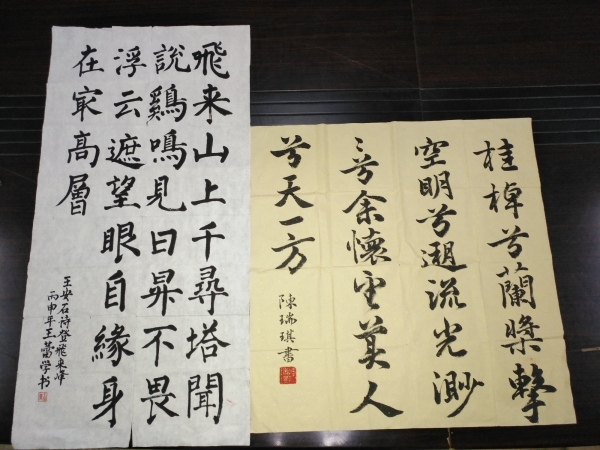 飛来山上千尋塔聞
說鷄鳴見日昇不畏
浮云遮望眼自緣身
在㝡高層
王安石詩登飛来峰
丙申年王蕾學书
桂棹兮蘭槳擊
空明兮遡流光渺
〻兮余懷望美人
兮天一方
陳瑞琪書